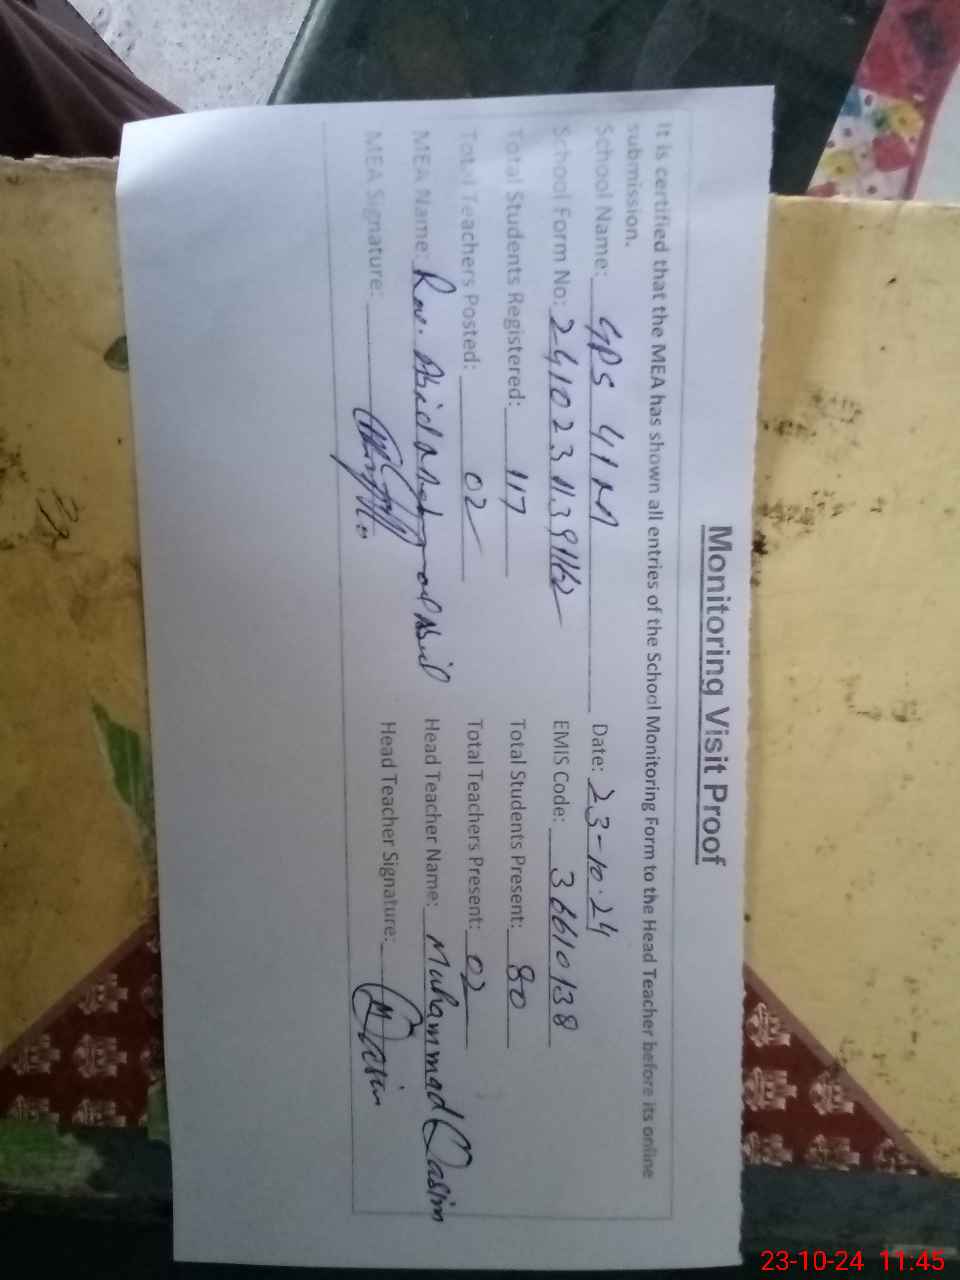 Monitoring Visit Proof
It is certified that the MEA has shown all entries of the School Monitoring Form to the Head Teacher before its online
submission.
School Name: GPS 41M Date: 23-10-24
School Form No: EMIS Code: 36610138
Total Students Registered: 117 Total Students Present: 80
Total Teachers Posted: 02 Total Teachers Present: 02
MEA Name: Abid Head Teacher Name: Muhammad Qasim
MEA Signature: Head Teacher Signature: Qasim
23-10-24 11:45